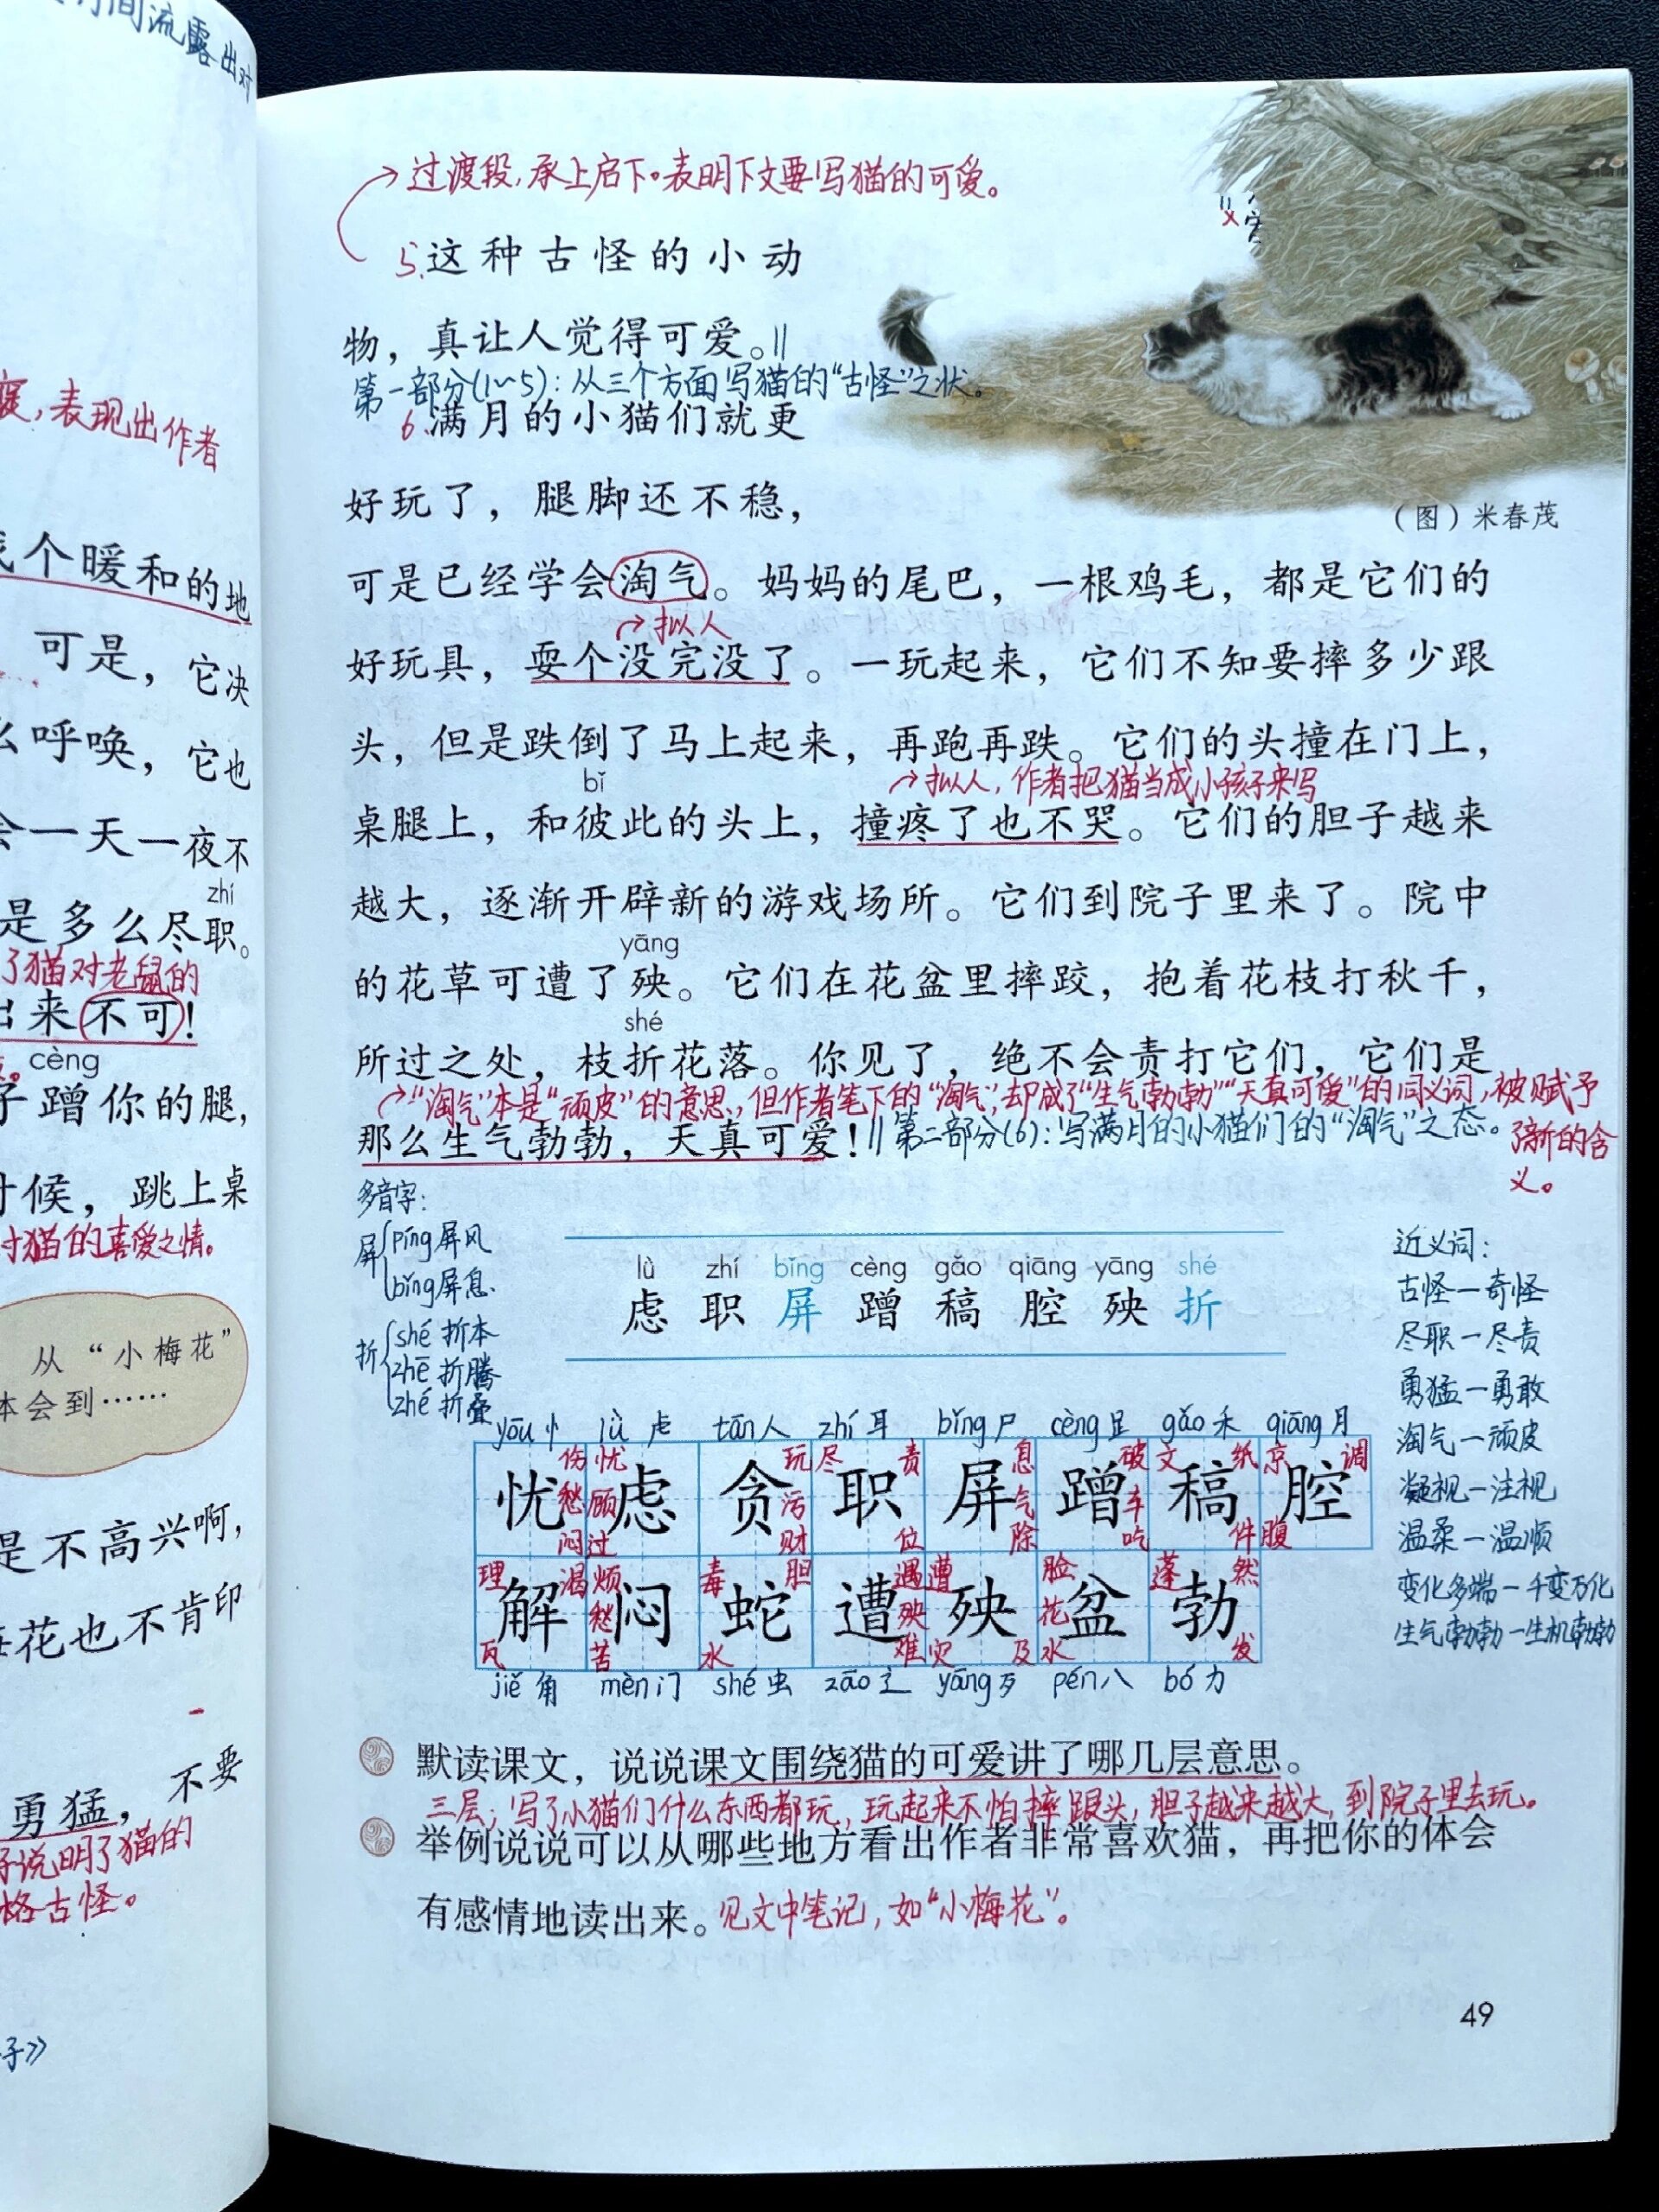 月间流露出对
度，表现出作者
个暖和的地
可是，它决
么呼唤，它也
会一天一夜不
zhí
是多么尽职。
了猫对老鼠的
出来不可！
cèng
子蹭你的腿，
时候，跳上桌
对猫的喜爱之情。
从“小梅花”
体会到……
是不高兴啊，
梅花也不肯印
勇猛，不要
好说明了猫的
格古怪。
子》
过渡段，承上启下。表明下文要写猫的可爱。
5.这种古怪的小动
物，真让人觉得可爱。‖
第一部分(1~5)：从三个方面写猫的“古怪”之状。
6.满月的小猫们就更
好玩了，腿脚还不稳，
（图）米春茂
可是已经学会淘气。妈妈的尾巴，一根鸡毛，都是它们的
→拟人
好玩具，耍个没完没了。一玩起来，它们不知要摔多少跟
头，但是跌倒了马上起来，再跑再跌。它们的头撞在门上，
bǐ
→拟人，作者把猫当成小孩子来写
桌腿上，和彼此的头上，撞疼了也不哭。它们的胆子越来
越大，逐渐开辟新的游戏场所。它们到院子里来了。院中
yāng
的花草可遭了殃。它们在花盆里摔跤，抱着花枝打秋千，
shé
所过之处，枝折花落。你见了，绝不会责打它们，它们是
→“淘气”本是“顽皮”的意思，但作者笔下的“淘气”，却成了“生气勃勃”“天真可爱”的同义词，被赋予
了新的含
义。
那么生气勃勃，天真可爱！‖第二部分(6)：写满月的小猫们的“淘气”之态。
多音字：
屏 píng屏风
bǐng屏息
折 shé 折本
zhē 折腾
zhé 折叠
lǜ zhí bǐng cèng gǎo qiāng yāng shé
虑 职 屏 蹭 稿 腔 殃 折
近义词：
古怪—奇怪
尽职—尽责
勇猛—勇敢
淘气—顽皮
凝视—注视
温柔—温顺
变化多端—千变万化
生气勃勃—生机勃勃
yōu忄 lǜ 虍 tān人 zhí耳 bǐng尸 cèng足 gǎo禾 qiāng月
忧 虑 贪 职 屏 蹭 稿 腔
伤 愁 闷
忧 顾 过
玩 污 财
尽 责 位
息 气 除
破 车 吃
文 纸 件
京 调 腹
解 闷 蛇 遭 殃 盆 勃
理 渴 瓦
烦 愁 苦
毒 胆 水
遇 殃 难
遭 灾 及
脸 花 水
蓬 然 发
jiě角 mèn门 shé虫 zāo辶 yāng歹 pén八 bó力
默读课文，说说课文围绕猫的可爱讲了哪几层意思。
三层；写了小猫们什么东西都玩，玩起来不怕摔跟头，胆子越来越大，到院子里去玩。
举例说说可以从哪些地方看出作者非常喜欢猫，再把你的体会
有感情地读出来。见文中笔记，如“小梅花”。
49